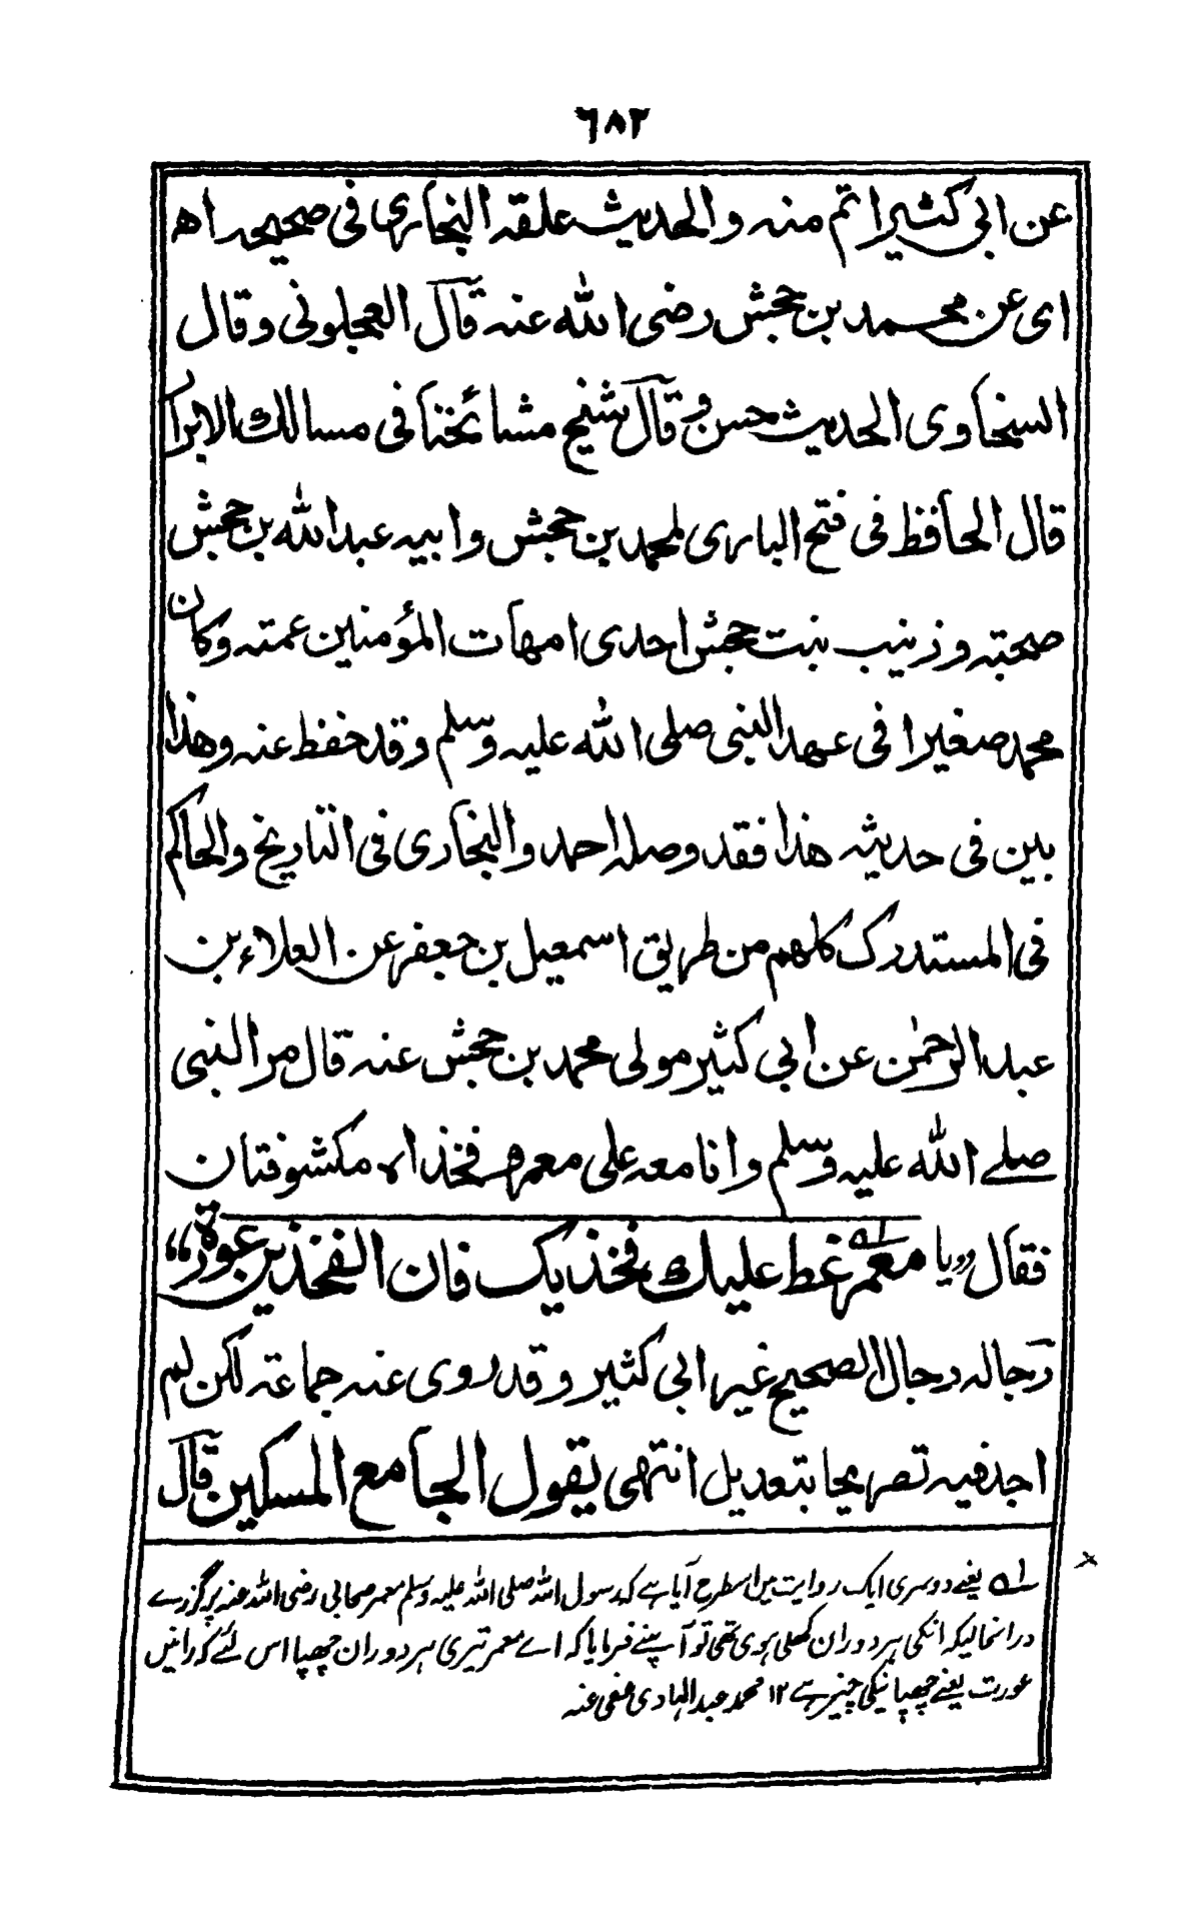 ٦٨٢
عن ابی کثیر اتم منہ والحدیث علقہ البخاری فی صحیحہ اھ
ای عن محمد بن جحش رضی اللہ عنہ قال العجلونی وقال
السخاوی الحدیث حسن و قال شیخ مشائخنا فی مسالک الابرار
قال الحافظ فی فتح الباری لمحمد بن جحش وابیہ عبد اللہ بن جحش
صحبتہ وزینب بنت جحش احدی امہات المؤمنین عمتہ وکان
محمد صغیرا فی عہد النبی صلی اللہ علیہ وسلم وقد حفظ عنہ وھذا
بین فی حدیثہ ھذا فقد وصلہ احمد والبخاری فی التاریخ والحاکم
فی المستدرک کلھم من طریق اسمعیل بن جعفر عن العلاء بن
عبد الرحمٰن عن ابی کثیر مولی محمد بن جحش عنہ قال مر النبی
صلے اللہ علیہ وسلم وانا معہ علی معمر وفخذاہ مکشوفتان
فقال یا معمر غط علیک فخذیک فان الفخذین عورۃ،،
رجالہ رجال الصحیح غیر ابی کثیر وقد روی عنہ جماعۃ لکن لم
اجد فیہ تصریحا بتعدیل انتھی یقول الجامع المسکین قال
لہ یعنے دوسری ایک روایت میں اسطرح آیا ہے کہ رسول اللہ صلی اللہ علیہ وسلم معمر صحابی رضی اللہ عنہ پر گزرے
درانحالیکہ انکی ہر دو ران کھلی ہوی تھی تو آپ نے فرمایا کہ اے معمر تیری ہر دو ران چھپا اس لئے کہ رانیں
عورت یعنے چھپانیکی چیز ہے ۱۲ محمد عبد الہادی عفی عنہ